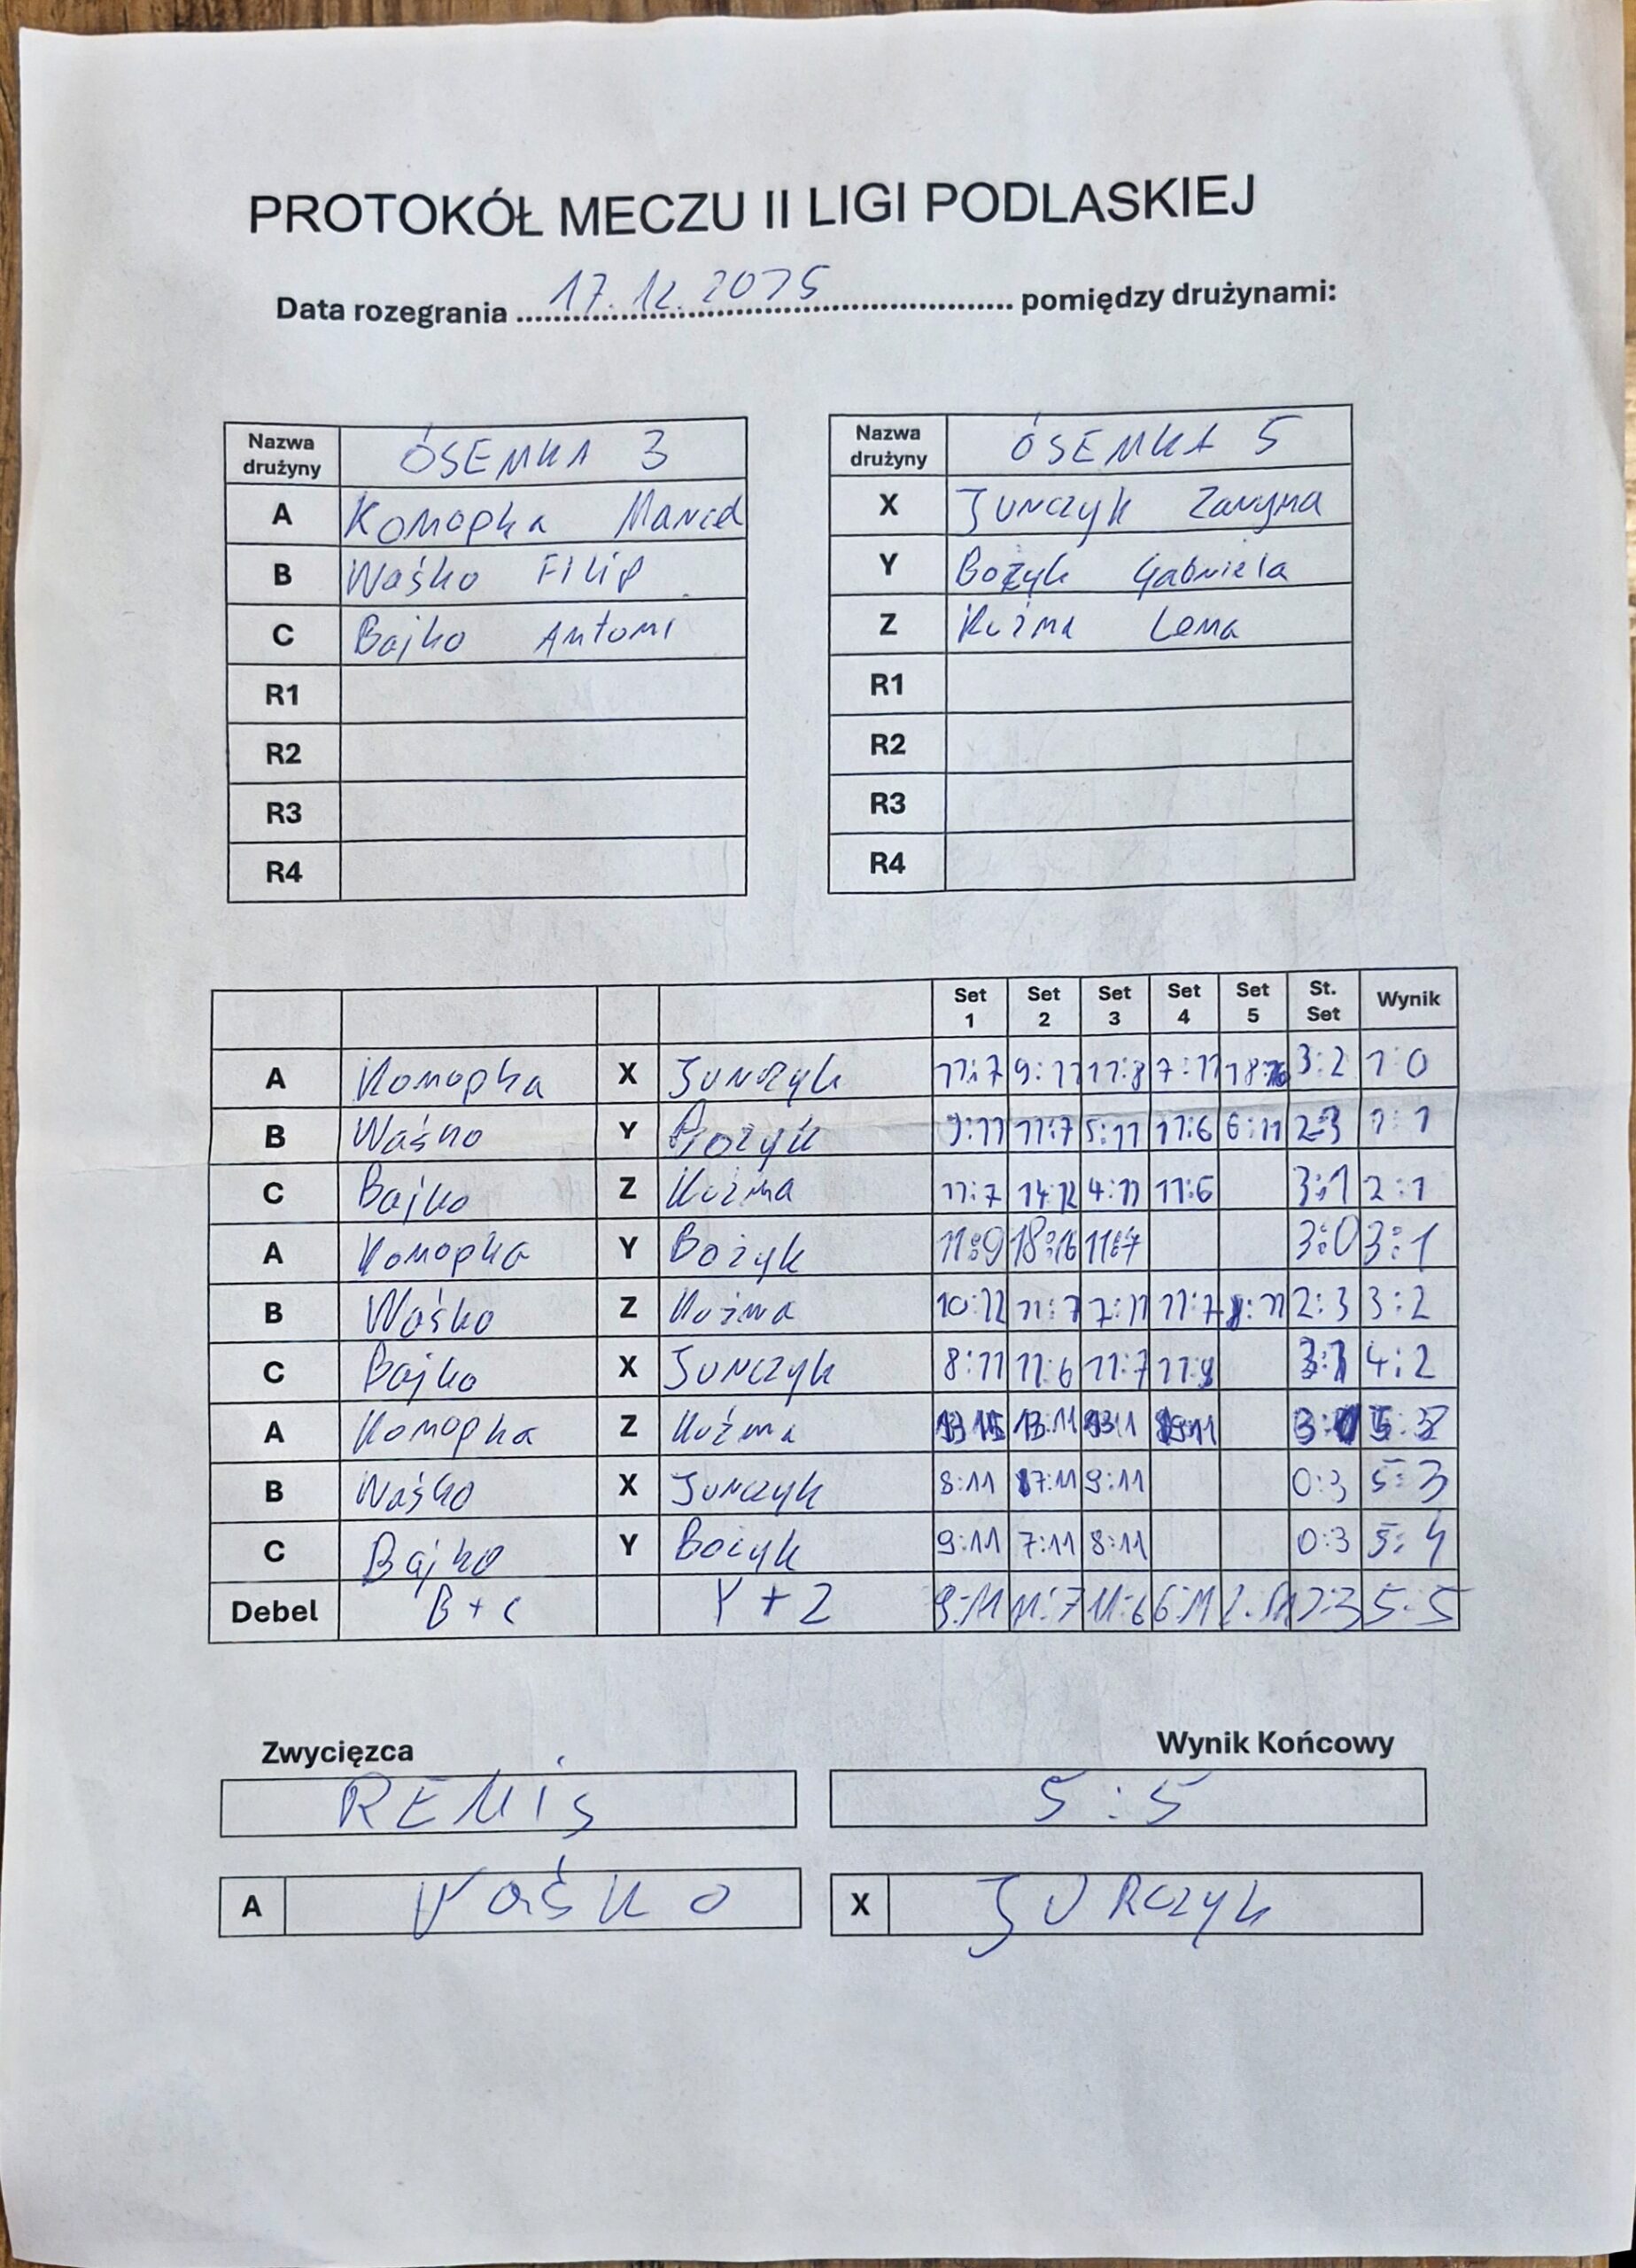 PROTOKÓŁ MECZU II LIGI PODLASKIEJ
Data rozegrania 17.12.2025 pomiędzy drużynami:
Nazwa drużyny ÓSEMKA 3
A Konopka Marcel
B Waśko Filip
C Bajko Antoni
R1
R2
R3
R4
Nazwa drużyny ÓSEMKA 5
X Jurczyk Zaryna
Y Bożyk Gabriela
Z Kuźma Lena
R1
R2
R3
R4
Set 1 Set 2 Set 3 Set 4 Set 5 St. Set Wynik
A Konopka X Jurczyk 11:7 9:11 11:8 7:11 18:16 3:2 1:0
B Waśko Y Bożyk 9:11 11:7 5:11 11:6 6:11 2:3 1:1
C Bajko Z Kuźma 11:7 14:12 4:11 11:6 3:1 2:1
A Konopka Y Bożyk 11:9 18:16 11:7 3:0 3:1
B Waśko Z Kuźma 10:12 11:7 7:11 11:7 8:11 2:3 3:2
C Bajko X Jurczyk 8:11 11:6 11:7 11:9 3:1 4:2
A Konopka Z Kuźma 13:11
B Waśko X Jurczyk 8:11 7:11 9:11 0:3 5:3
C Bajko Y Bożyk 9:11 7:11 8:11 0:3 5:4
Debel B+C Y+Z 9:11 11:7 11:6 6:11 2:3 5:5
Zwycięzca
REMIS
Wynik Końcowy
5:5
A Waśko
X JURczyk